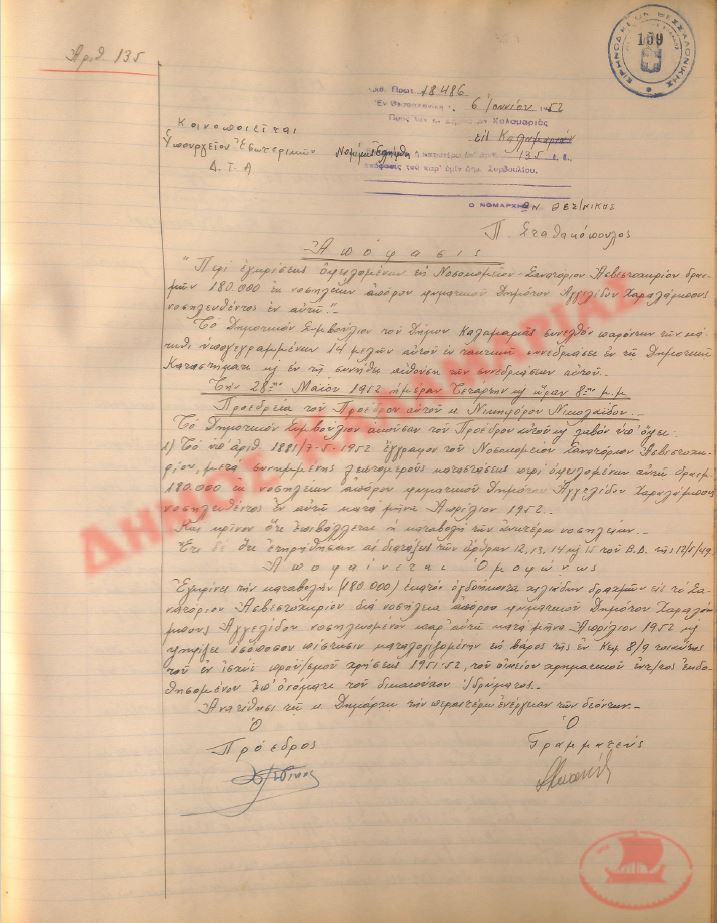 Ἀριθ. 135
ΕΙΡΗΝΟΔΙΚΕΙΟΝ ΘΕΣΣΑΛΟΝΙΚΗΣ
159
Ἀριθ. Πρωτ. 18486
Ἐν Θεσσαλονίκῃ 6 Ἰουνίου 1952
Πρὸς τὸν κ. Δήμαρχον Καλαμαριᾶς
εἰς Καλαμαριὰν
Κοινοποιεῖται
Ὑπουργεῖον Ἐσωτερικῶν
Δ.Τ.Α.
Νομίμως ἐλήφθη ἡ κατωτέρω ὑπ' ἀριθ. 135 ἐ. ἔ.
ἀπόφασις τοῦ παρ' ὑμῖν Δημ. Συμβουλίου.
Ὁ ΝΟΜΑΡΧΗΣ ΘΕΣ/ΝΙΚΗΣ
Π. Σταθακόπουλος
Ἀπόφασις
"Περὶ ἐγκρίσεως ὀφειλομένων εἰς Νοσοκομεῖον-Σανατόριον Ἀσβεστοχωρίου δραχ-
μῶν 180.000 ἐκ νοσηλείων ἀπόρου φυματικοῦ Δημότου Ἀγγελίδου Χαραλάμπους
νοσηλευθέντος ἐν αὐτῷ"._
Τὸ Δημοτικὸν Συμβούλιον τοῦ Δήμου Καλαμαριᾶς συνελθὸν παρόντων τῶν κά-
τωθι ὑπογεγραμμένων 14 μελῶν αὐτοῦ ἐν τακτικῇ συνεδριάσει ἐν τῷ Δημοτικῷ
Καταστήματι κ ἐν τῇ συνήθει αἰθούσῃ τῶν συνεδριάσεων αὐτοῦ._
Τὴν 28ην Μαΐου 1952 ἡμέραν Τετάρτην κ ὥραν 8ην μ.μ
Προεδρεία τοῦ Προέδρου αὐτοῦ κ Νικηφόρου Νικολαΐδου._
Τὸ Δημοτικὸν Συμβούλιον ἀκοῦσαν τοῦ Προέδρου αὐτοῦ κ λαβὸν ὑπ' ὄψει:
1) Τὸ ὑπ' ἀριθ. 1881/7-5-1952 ἔγγραφον τοῦ Νοσοκομείου Σανατορίου Ἀσβεστοχω-
ρίου, μετὰ συνημμένης λεπτομεροῦς καταστάσεως περὶ ὀφειλομένων αὐτῷ δραχμ.
180.000 ἐκ νοσηλείων ἀπόρου φυματικοῦ Δημότου Ἀγγελίδου Χαραλάμπους
νοσηλευθέντος ἐν αὐτῷ κατὰ μῆνα Ἀπρίλιον 1952._
Καὶ κρῖνον ὅτι ἐπιβάλλεται ἡ καταβολὴ τῶν ἀνωτέρω νοσηλείων._
Ἔτι δὲ ὅτι ἐτηρήθησαν αἱ διατάξεις τῶν ἄρθρων 12, 13, 14 κ 15 τοῦ Β.Δ. τῆς 17/5/49._
Ἀποφαίνεται Ὁμοφώνως
Ἐγκρίνει τὴν καταβολὴν (180.000) ἑκατὸν ὀγδοήκοντα χιλιάδων δραχμῶν εἰς τὸ Σα-
νατόριον Ἀσβεστοχωρίου διὰ νοσήλεια ἀπόρου φυματικοῦ Δημότου Χαραλάμ-
πους Ἀγγελίδου νοσηλευομένου παρ' αὐτῷ κατὰ μῆνα Ἀπρίλιον 1952 κ
ψηφίζει ἰσόποσον πίστωσιν καταλογιζομένην εἰς βάρος τῆς ἐν Κεφ 8/9 τοιαύτης
τοῦ ἐν ἰσχύϊ προϋ/σμοῦ χρήσεως 1951-52, τοῦ οἰκείου χρηματικοῦ ἐντ/τος ἐκδο-
θησομένου ἐπ' ὀνόματι τοῦ δικαιούχου Ἱδρύματος._
Ἀνατίθησι τῷ κ Δημάρχῳ τὴν περαιτέρω ἐνέργειαν τῶν δεόντων._
Ὁ
Πρόεδρος
Ὁ
Γραμματεύς
ΔΗΜΟΣ ΚΑΛΑΜΑΡΙΑΣ